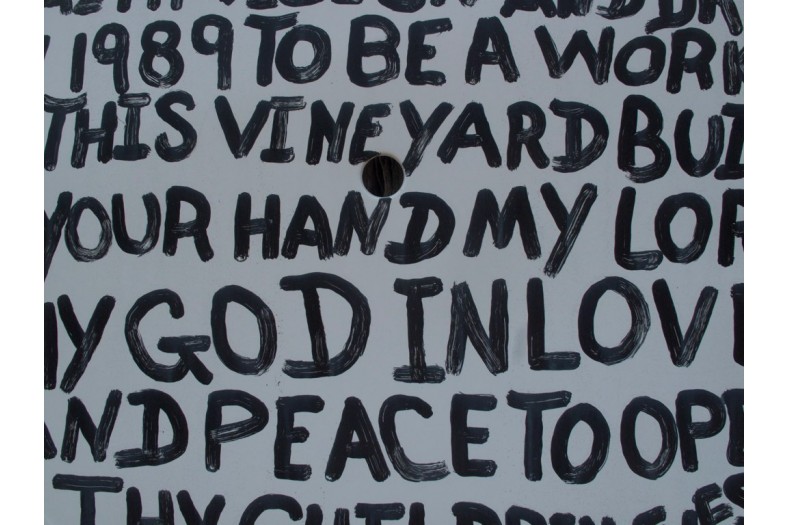 1989 TO BE A WORK
THIS VINEYARD BUI
YOUR HAND MY LOR
MY GOD IN LOVE
AND PEACE TO OPE
THY CHILDRINS